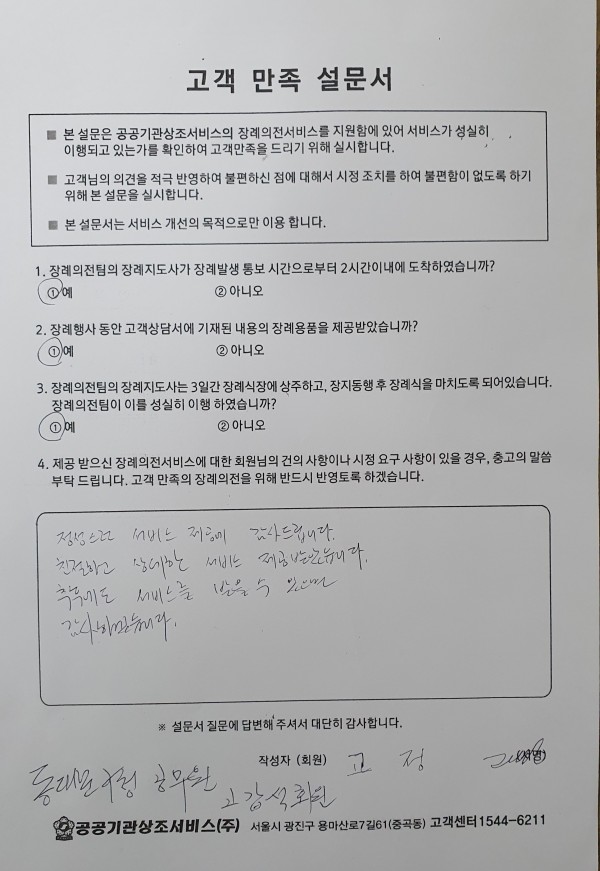 고객 만족 설문서
■ 본 설문은 공공기관상조서비스의 장례의전서비스를 지원함에 있어 서비스가 성실히
이행되고 있는가를 확인하여 고객만족을 드리기 위해 실시합니다.
■ 고객님의 의견을 적극 반영하여 불편하신 점에 대해서 시정 조치를 하여 불편함이 없도록 하기
위해 본 설문을 실시합니다.
■ 본 설문서는 서비스 개선의 목적으로만 이용 합니다.
1. 장례의전팀의 장례지도사가 장례발생 통보 시간으로부터 2시간이내에 도착하였습니까?
① 예 ② 아니오
2. 장례행사 동안 고객상담서에 기재된 내용의 장례용품을 제공받았습니까?
① 예 ② 아니오
3. 장례의전팀의 장례지도사는 3일간 장례식장에 상주하고, 장지동행 후 장례식을 마치도록 되어있습니다.
장례의전팀이 이를 성실히 이행 하였습니까?
① 예 ② 아니오
4. 제공 받으신 장례의전서비스에 대한 회원님의 건의 사항이나 시정 요구 사항이 있을 경우, 충고의 말씀
부탁 드립니다. 고객 만족의 장례의전을 위해 반드시 반영토록 하겠습니다.
정성스런 서비스 제공에 감사드립니다.
친절하고 상세한 서비스 제공받았습니다.
추후에도 서비스를 받을 수 있으면
감사하겠습니다.
※ 설문서 질문에 답변해 주셔서 대단히 감사합니다.
작성자 (회원) 고 정
동대문구청 공무원
고갑석회원
공공기관상조서비스(주) 서울시 광진구 용마산로7길61(중곡동) 고객센터1544-6211